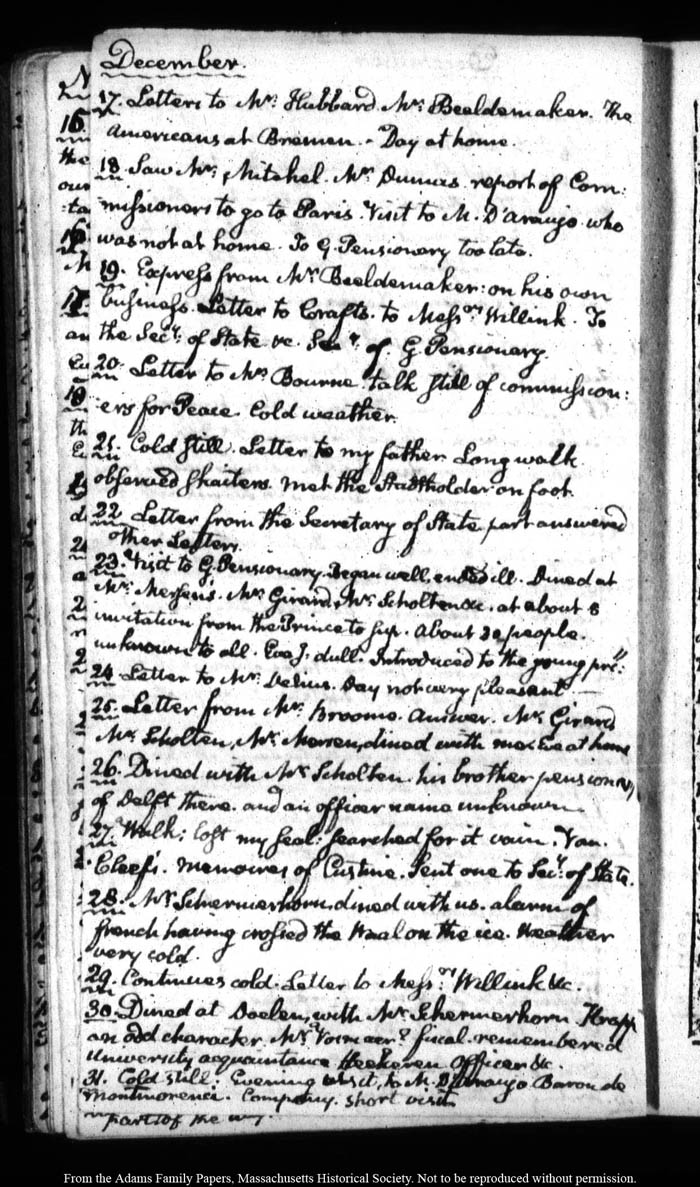 December.
17. Letters to Mr. Hubbard. Mr. Beeldemaker. The
Americans at Bremen. - Day at home.
18. Saw Mr. Mitchel. Mr. Dumas. report of Com:
missioners to go to Paris. Visit to M. D'araujo who
was not at home. To G. Pensionary too late.
19. Express from Mr. Beeldemaker: on his own
business. Letter to Crafts. to Messrs. Willink. To
the Secy. of State &c. of G. Pensionary.
20. Letter to Mr. Bourne. talk still of commission:
ers for Peace. Cold weather.
21. Cold still. Letter to my father. Long walk.
observed skaiters. met the Stadtholder on foot.
22. Letter from the Secretary of State, part answered
other Letters.
23. Visit to G. Pensionary. Began well, ended ill. Dined at
Mr. Mr. Girard, Mr. Scholten &c. at about 8
invitation from the Prince to sup. About 30 people.
unknown to all. Eve g: dull. Introduced to the young
24. Letter to Mr. Delius. Day not very pleasant.
25. Letter from Mr. Broome. Answer. Mr. Girard
Mr. Scholten, Mr. dined with me. Eve at home
26. Dined with Mr. Scholten. his brother pensionary
of Delft there. and an officer name unknown.
27. Walk; lost my seal: searched for it vain. Van.
Cleef's. Memoires of Custine. Sent one to Secy. of State.
28. Mr. Schermerhorn, dined with us. alarm of
french having crossed the Waal on the ice. Weather
very cold.
29. Continues cold. Letter to Messrs. Willink &c.
30. Dined at Doelen, with Mr. Schermerhorn.
an odd character. Mr. fiscal. remembered
University acquaintance Heekeren Officer &c.
31. Cold still: Evening visit, to M. D'araujo Baron de
Montmorenci. Company. short visit.
part of the way.
From the Adams Family Papers, Massachusetts Historical Society. Not to be reproduced without permission.